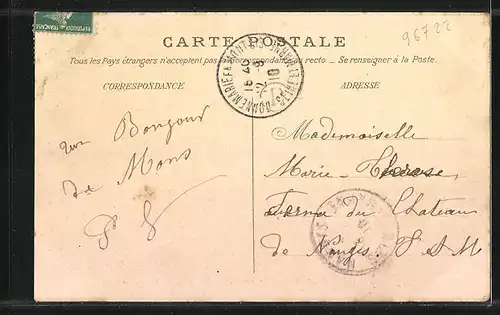 96722
CARTE POSTALE
Tous les Pays étrangers n'acceptent pas la correspondance au recto. — Se renseigner à la Poste.
CORRESPONDANCE
ADRESSE
Bonjour
de Mons
Mademoiselle
Marie - Thérèse
Ferme du Chateau
de Nangis. S & M